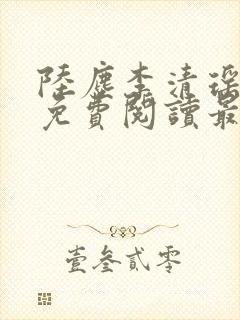 陸塵李清瑤
免費閱讀最
壹叁貳零